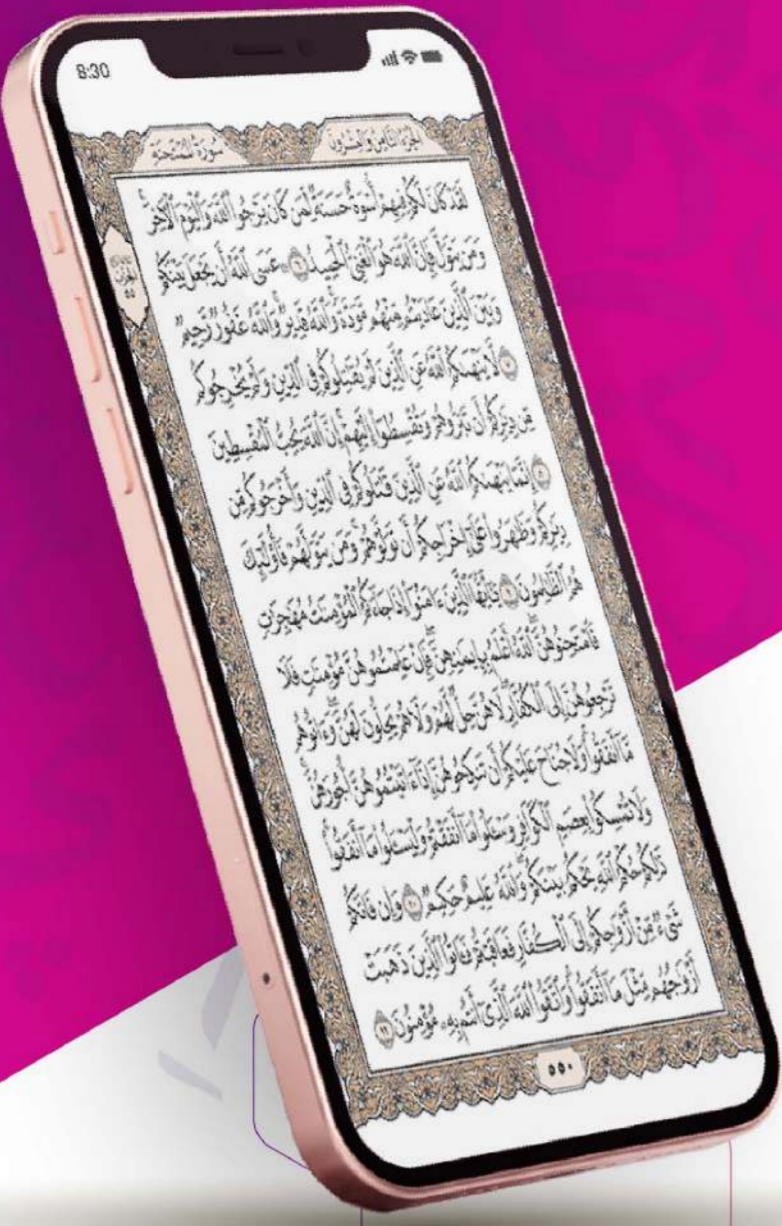 8:30
سُورَةُ المُمْتَحنَةِ
الجُزءُ الثَّامِنُ وَالعِشْرُونَ
لَقَدْ كَانَ لَكُمْ فِيهِمْ أُسْوَةٌ حَسَنَةٌ لِّمَن كَانَ يَرْجُوا۟ ٱللَّهَ وَٱلْيَوْمَ ٱلْـَٔاخِرَ
وَمَن يَتَوَلَّ فَإِنَّ ٱللَّهَ هُوَ ٱلْغَنِىُّ ٱلْحَمِيدُ ٦ ۞ عَسَى ٱللَّهُ أَن يَجْعَلَ بَيْنَكُمْ
وَبَيْنَ ٱلَّذِينَ عَادَيْتُم مِّنْهُم مَّوَدَّةً وَٱللَّهُ قَدِيرٌ وَٱللَّهُ غَفُورٌ رَّحِيمٌ
٧ لَّا يَنْهَىٰكُمُ ٱللَّهُ عَنِ ٱلَّذِينَ لَمْ يُقَـٰتِلُوكُمْ فِى ٱلدِّينِ وَلَمْ يُخْرِجُوكُم
مِّن دِيَـٰرِكُمْ أَن تَبَرُّوهُمْ وَتُقْسِطُوٓا۟ إِلَيْهِمْ إِنَّ ٱللَّهَ يُحِبُّ ٱلْمُقْسِطِينَ
٨ إِنَّمَا يَنْهَىٰكُمُ ٱللَّهُ عَنِ ٱلَّذِينَ قَـٰتَلُوكُمْ فِى ٱلدِّينِ وَأَخْرَجُوكُم مِّن
دِيَـٰرِكُمْ وَظَـٰهَرُوا۟ عَلَىٰٓ إِخْرَاجِكُمْ أَن تَوَلَّوْهُمْ وَمَن يَتَوَلَّهُمْ فَأُو۟لَـٰٓئِكَ
هُمُ ٱلظَّـٰلِمُونَ ٩ يَـٰٓأَيُّهَا ٱلَّذِينَ ءَامَنُوٓا۟ إِذَا جَآءَكُمُ ٱلْمُؤْمِنَـٰتُ مُهَـٰجِرَٰتٍ
فَٱمْتَحِنُوهُنَّ ٱللَّهُ أَعْلَمُ بِإِيمَـٰنِهِنَّ فَإِنْ عَلِمْتُمُوهُنَّ مُؤْمِنَـٰتٍ فَلَا
تَرْجِعُوهُنَّ إِلَى ٱلْكُفَّارِ لَا هُنَّ حِلٌّ لَّهُمْ وَلَا هُمْ يَحِلُّونَ لَهُنَّ وَءَاتُوهُم
مَّآ أَنفَقُوا۟ وَلَا جُنَاحَ عَلَيْكُمْ أَن تَنكِحُوهُنَّ إِذَآ ءَاتَيْتُمُوهُنَّ أُجُورَهُنَّ
وَلَا تُمْسِكُوا۟ بِعِصَمِ ٱلْكَوَافِرِ وَسْـَٔلُوا۟ مَآ أَنفَقْتُمْ وَلْيَسْـَٔلُوا۟ مَآ أَنفَقُوا۟
ذَٰلِكُمْ حُكْمُ ٱللَّهِ يَحْكُمُ بَيْنَكُمْ وَٱللَّهُ عَلِيمٌ حَكِيمٌ ١٠ وَإِن فَاتَكُمْ
شَىْءٌ مِّنْ أَزْوَٰجِكُمْ إِلَى ٱلْكُفَّارِ فَعَاقَبْتُمْ فَـَٔاتُوا۟ ٱلَّذِينَ ذَهَبَتْ
أَزْوَٰجُهُم مِّثْلَ مَآ أَنفَقُوا۟ وَٱتَّقُوا۟ ٱللَّهَ ٱلَّذِىٓ أَنتُم بِهِۦ مُؤْمِنُونَ ١١
٥٥٠